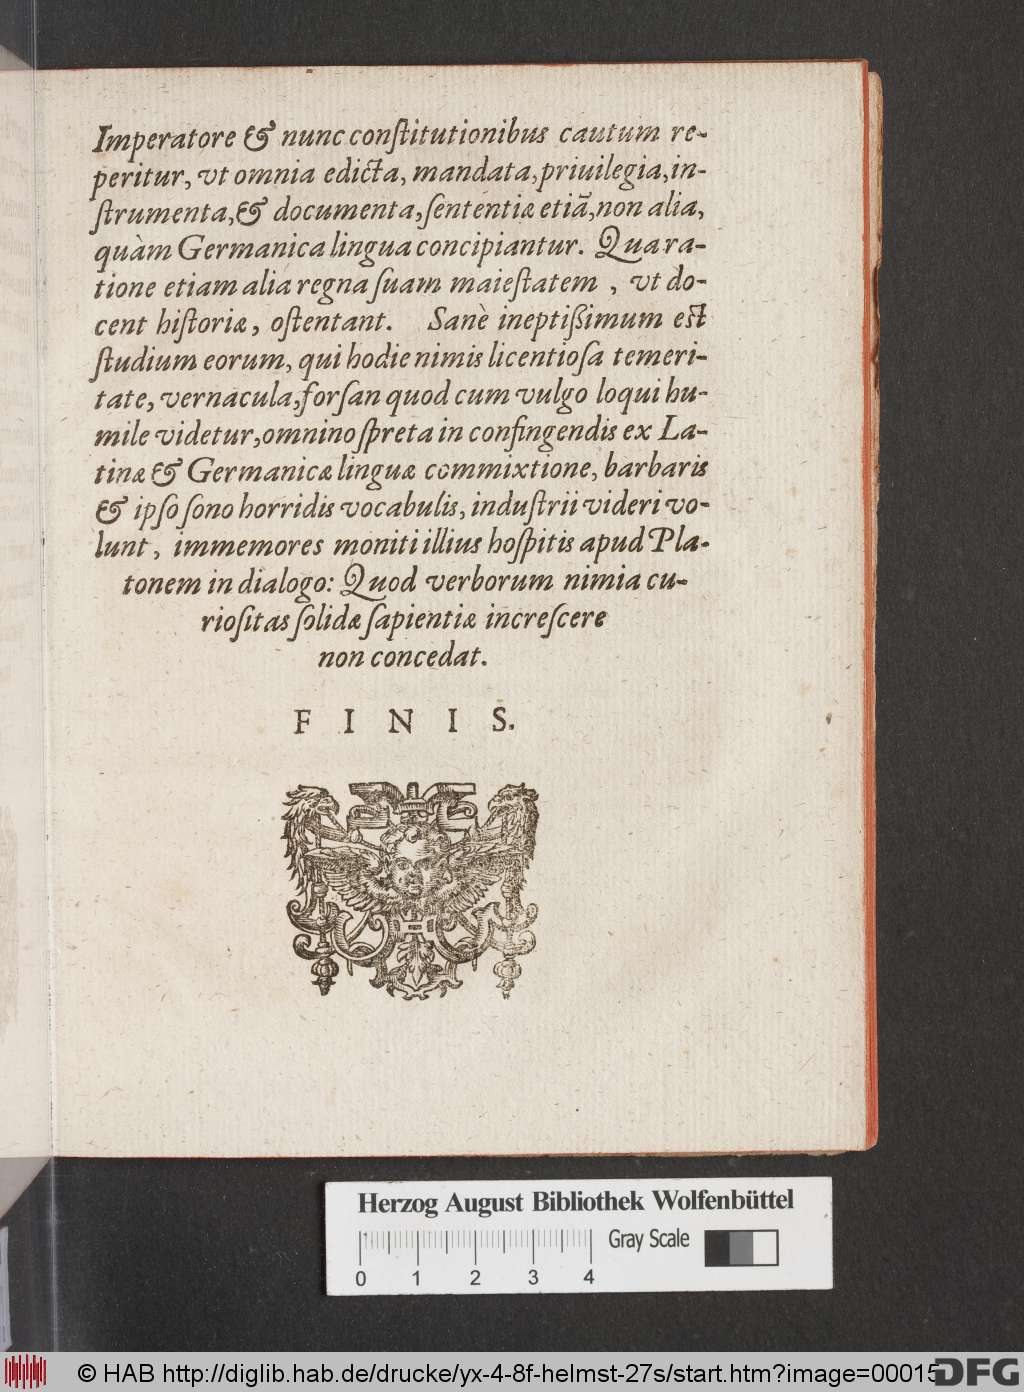 Imperatore & nunc conſtitutionibus cautum re-
peritur, vt omnia edicta, mandata, priuilegia, in-
ſtrumenta, & documenta, ſententiæ etiã, non alia,
quàm Germanica lingua concipiantur. Qua ra-
tione etiam alia regna ſuam maieſtatem, vt do-
cent hiſtoriæ, oſtentant. Sanè ineptißimum eſt
ſtudium eorum, qui hodie nimis licentioſa temeri-
tate, vernacula, forſan quod cum vulgo loqui hu-
mile videtur, omnino ſpreta in confingendis ex La-
tinæ & Germanicæ linguæ commixtione, barbaris
& ipſo ſono horridis vocabulis, induſtrii videri vo-
lunt, immemores moniti illius hoſpitis apud Pla-
tonem in dialogo: Quod verborum nimia cu-
rioſitas ſolidæ ſapientiæ increſcere
non concedat.
FINIS.
Herzog August Bibliothek Wolfenbüttel
Gray Scale
0 1 2 3 4
© HAB http://diglib.hab.de/drucke/yx-4-8f-helmst-27s/start.htm?image=00015
DFG